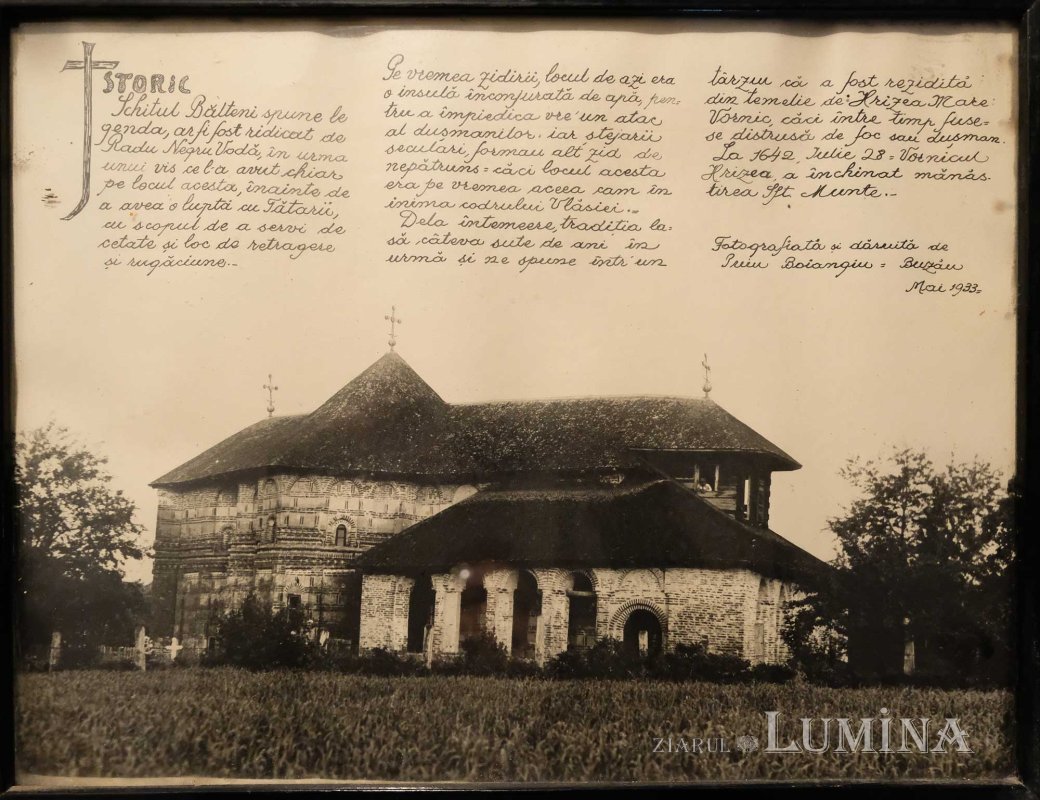 ISTORIC
Schitul Bălteni spune le
genda, ar fi fost ridicat de
Radu Negru Vodă, în urma
unui vis ce l-a avut chiar
pe locul acesta, înainte de
a avea o luptă cu Tătarii,
cu scopul de a servi de
cetate și loc de retragere
și rugăciune.-
Pe vremea zidirii, locul de azi era
o insulă înconjurată de apă, pen=
tru a împiedica vre'un atac
al dușmanilor. iar stejarii
seculari, formau alt zid de
nepătruns = căci locul acesta
era pe vremea aceea cam în
inima codrului Vlăsiei.=
Dela întemeere, tradiția la=
să câteva sute de ani în
urmă și ne spune într'un
târziu că a fost rezidită
din temelie de: Hrizea Mare
Vornic, căci între timp fuse=
se distrusă de foc sau dușman.
La 1642, Iulie 28 = Vornicul
Hrizea a închinat mănăs-
tirea Sft. Munte.-
Fotografiată și dăruită de
Puiu Boiangiu = Buzău
Mai 1933=
ZIARUL LUMINA